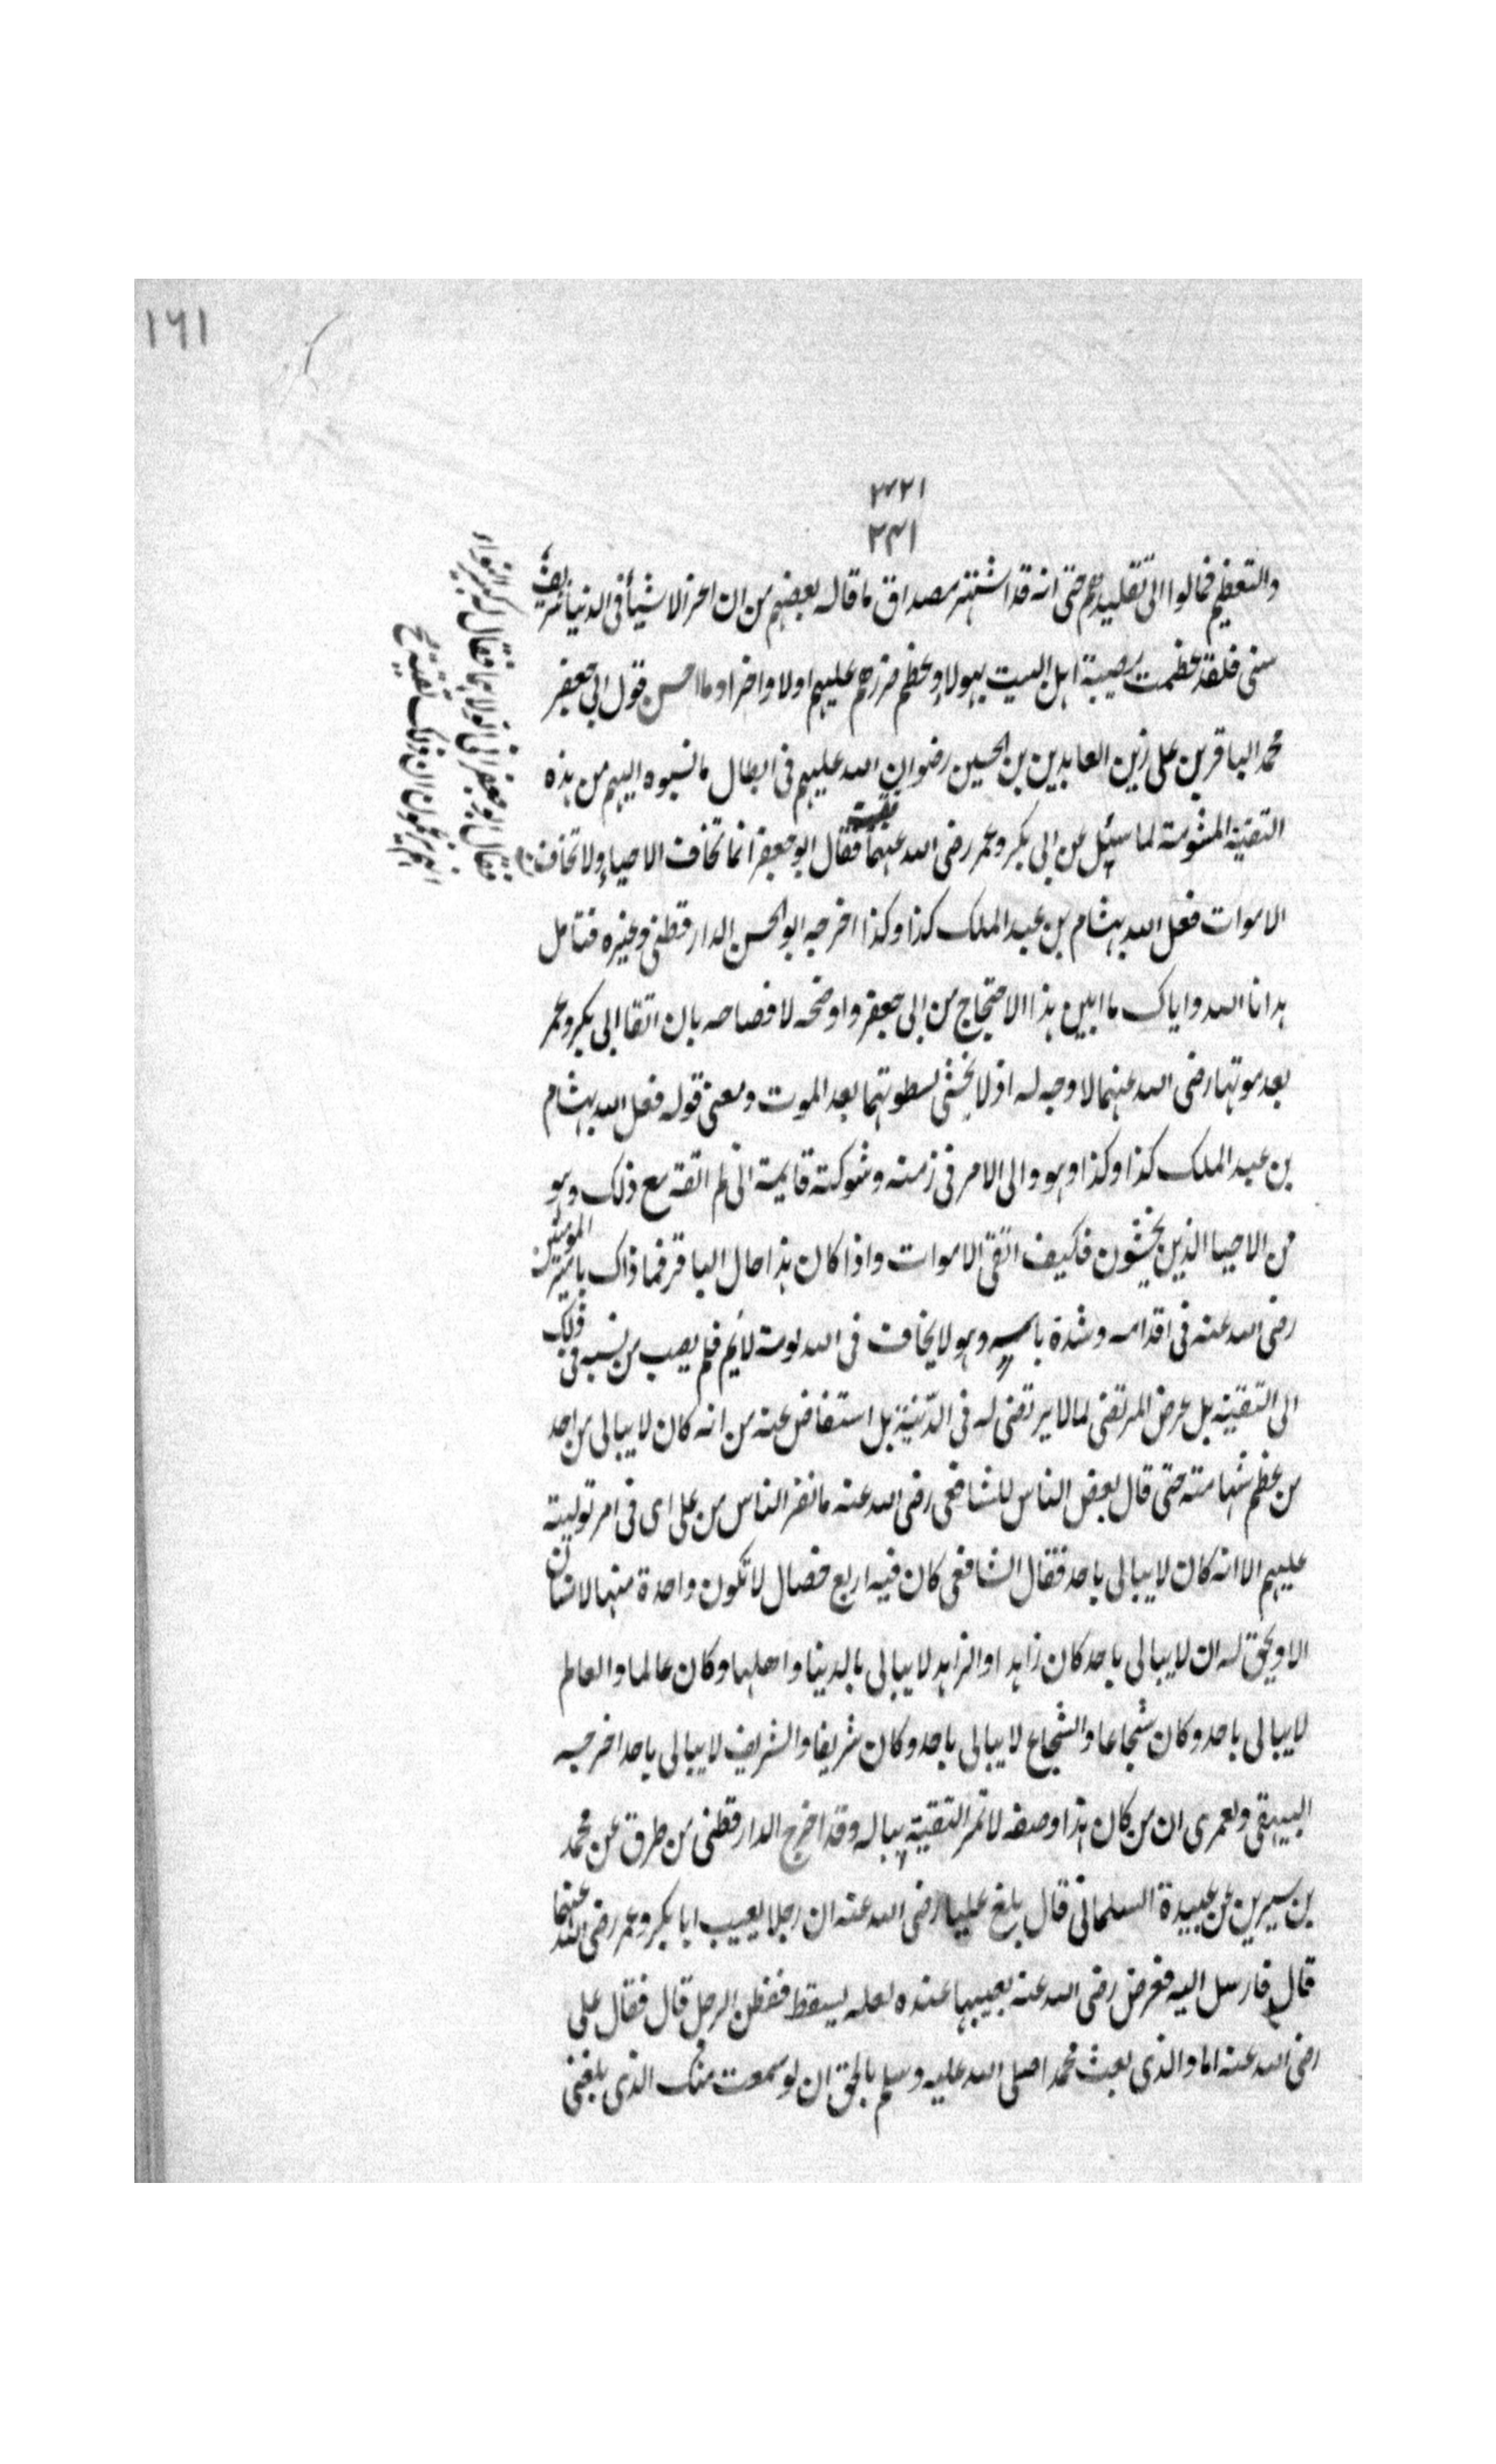 ١٦١
٢٧٢١
٢٣١
والتعظيم فمالوا الى تقليدهم حتى انه قد اشتهر مصداق ما قاله بعضهم من ان اعز الاشيأ فى الدنيا شريف
سنى فلقد عظمت مصيبة اهل البيت بهولاء وعظم ضررهم عليهم اولا واخرا وما احسن قول ابى جعفر
محمد الباقر بن على زين العابدين بن الحسين رضوان الله عليهم فى ابطال ما نسبوه اليهم من هذه
التقية المشومة لما سئل عن ابى بكر وعمر رضى الله عنهما فقال ابو جعفر انما تخاف الاحياء ولا تخاف
الاموات فعل الله بهشام بن عبد الملك كذا وكذا اخرجه ابو الحسن الدارقطنى وغيره فتامل
هدانا الله واياك ما ابين هذا الاحتجاج من ابى جعفر واوضحه لافصاحه بان اتقا ابى بكر وعمر
بعد موتهما رضى الله عنهما لا وجه له اذ لا يخشى لسطوتهما بعد الموت ومعنى قوله فعل الله بهشام
بن عبد الملك كذا وكذا وهو والى الامر فى زمنه وشوكته قايمة انى لم اتقه مع ذلك وهو
من الاحيا الذين يخشون فكيف اتقى الاموات واذا كان هذا حال الباقر فما ذاك بامير المومنين
رضى الله عنه فى اقدامه وشدة باسه وهو لا يخاف فى الله لومة لايم فلم يصب من نسبه فى ذلك
الى التقية بل عرض المرتضى لما لا يرتضى له فى الدنية بل استفاض عنه من انه كان لا يبالى من احد
من عظم شهامته حتى قال بعض الناس للشافعى رضى الله عنه ما نفر الناس من على اى فى امر توليته
عليهم الا انه كان لا يبالى باحد فقال الشافعى كان فيه اربع خصال لا تكون واحدة منها لانسان
الا ويحق له ان لا يبالى باحد كان زاهدا والزاهد لا يبالى بالدينا واهلها وكان عالما والعالم
لا يبالى باحد وكان شجاعا والشجاع لا يبالى باحد وكان شريفا والشريف لا يبالى باحد اخرجه
البيهقى ولعمرى ان من كان هذا وصفه لا تمر التقية بباله وقد اخرج الدارقطنى من طرق عن محمد
بن سيرين عن عبيدة السلمانى قال بلغ عليا رضى الله عنه ان رجلا يعيب ابا بكر وعمر رضى الله عنهما
قال فارسل اليه فعرض رضى الله عنه بعيبهما عنده لعله يسقط ففطن الرجل قال فقال على
رضى الله عنه اما والذى بعث محمدا صلى الله عليه وسلم بالحق ان لو سمعت منك الذى بلغنى